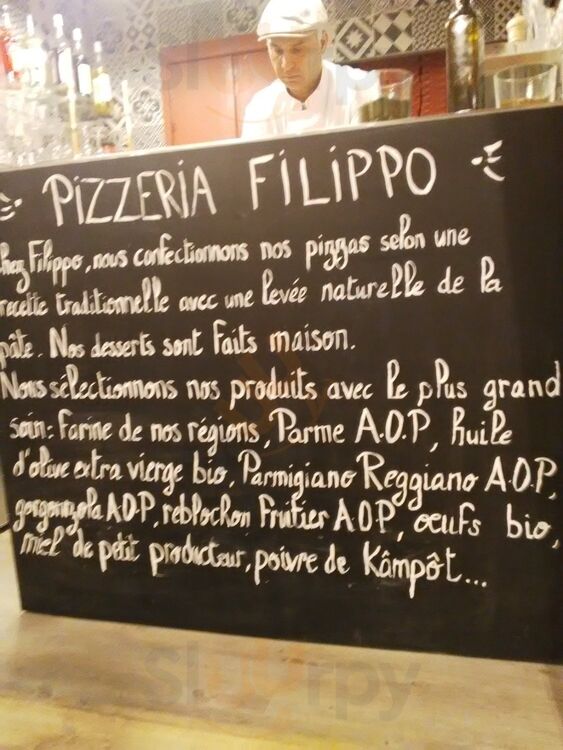 PIZZERIA FILIPPO
Chez Filippo, nous confectionnons nos pizzas selon une
recette traditionnelle avec une levée naturelle de la
pâte. Nos desserts sont faits maison.
Nous sélectionnons nos produits avec le plus grand
soin: Farine de nos régions, Parme A.O.P, huile
d'olive extra vierge bio, Parmigiano Reggiano A.O.P,
gorgonzola A.O.P, reblochon Fruitier A.O.P, oeufs bio,
miel de petit producteur, poivre de Kâmpôt...
Sluurpy